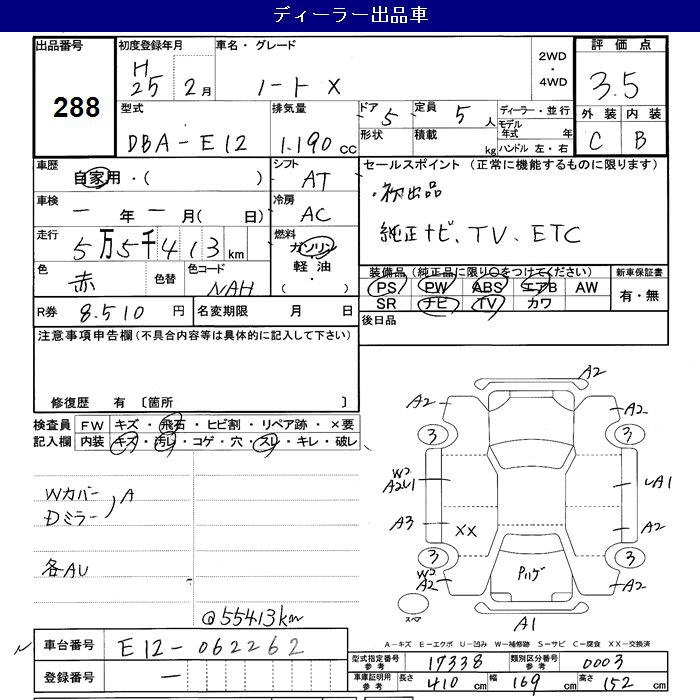 ディーラー出品車
出品番号 初度登録年月 車名・グレード 2WD・4WD 評価点
288 H25 2月 ノート X 3.5
型式 排気量 ドア 5 定員 5人 ディーラー・並行 外装 内装
DBA-E12 1.190cc 形状 積載 kg モデル年式 年 ハンドル 左・右 C B
車歴 シフト セールスポイント (正常に機能するものに限ります)
自家用・( ) AT ・初出品
車検 冷房
ー年ー月( 日) AC 純正ナビ、TV、ETC
走行 燃料
5万5千413km ガソリン
色 色替 色コード 軽油 装備品(純正品に限り○をつけてください) 新車保証書
赤 NAH ・( ) PS PW ABS エアB AW 有・無
SR ナビ TV カワ
R券 8.510円 名変期限 月 日 後日品
注意事項申告欄(不具合内容等は具体的に記入して下さい)
修復歴 有 〔箇所 〕
検査員 FW キズ・飛石・ヒビ割・リペア跡・×要
記入欄 内装 キズ・汚レ・コゲ・穴・スレ・キレ・破レ
Wカバー
Dミラー A
各AU
@55413km
A2
A2 A2
3 3
W2
A2U1 UA1
A3 XX A2
3 3
W2
A2 Pハゲ A2
スペア A1
A-キズ E-エクボ U-凹み W-補修跡 S-サビ C-腐食 XX-交換済
車台番号 E12-062262 型式指定番号参考 17338 類別区分番号参考 0003
登録番号 ー 車庫証明用参考 長さ 410cm 幅 169cm 高さ 152cm